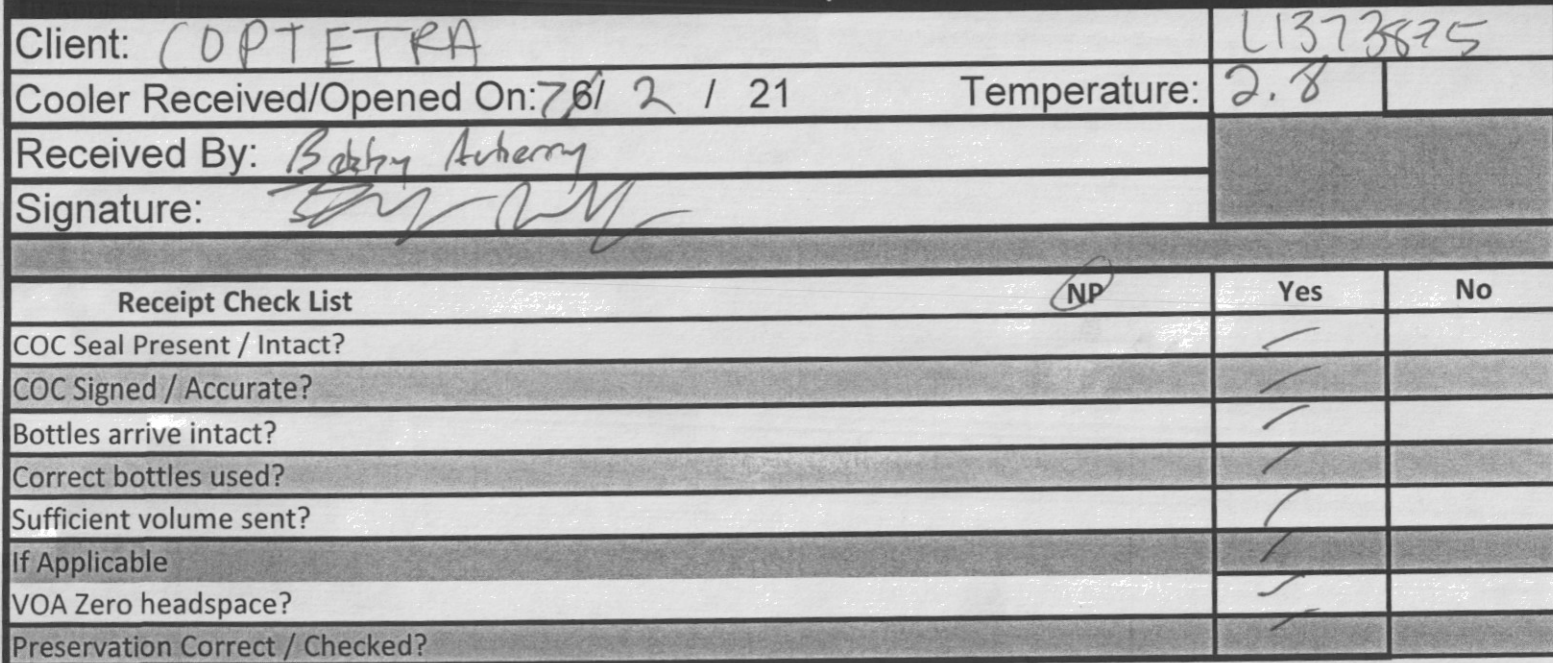 Client: COPTETRA L1373875
Cooler Received/Opened On: 7/ 2 / 21 Temperature: 2.8
Received By: Bobby
Signature:
Receipt Check List NP Yes No
COC Seal Present / Intact?
COC Signed / Accurate?
Bottles arrive intact?
Correct bottles used?
Sufficient volume sent?
If Applicable
VOA Zero headspace?
Preservation Correct / Checked?